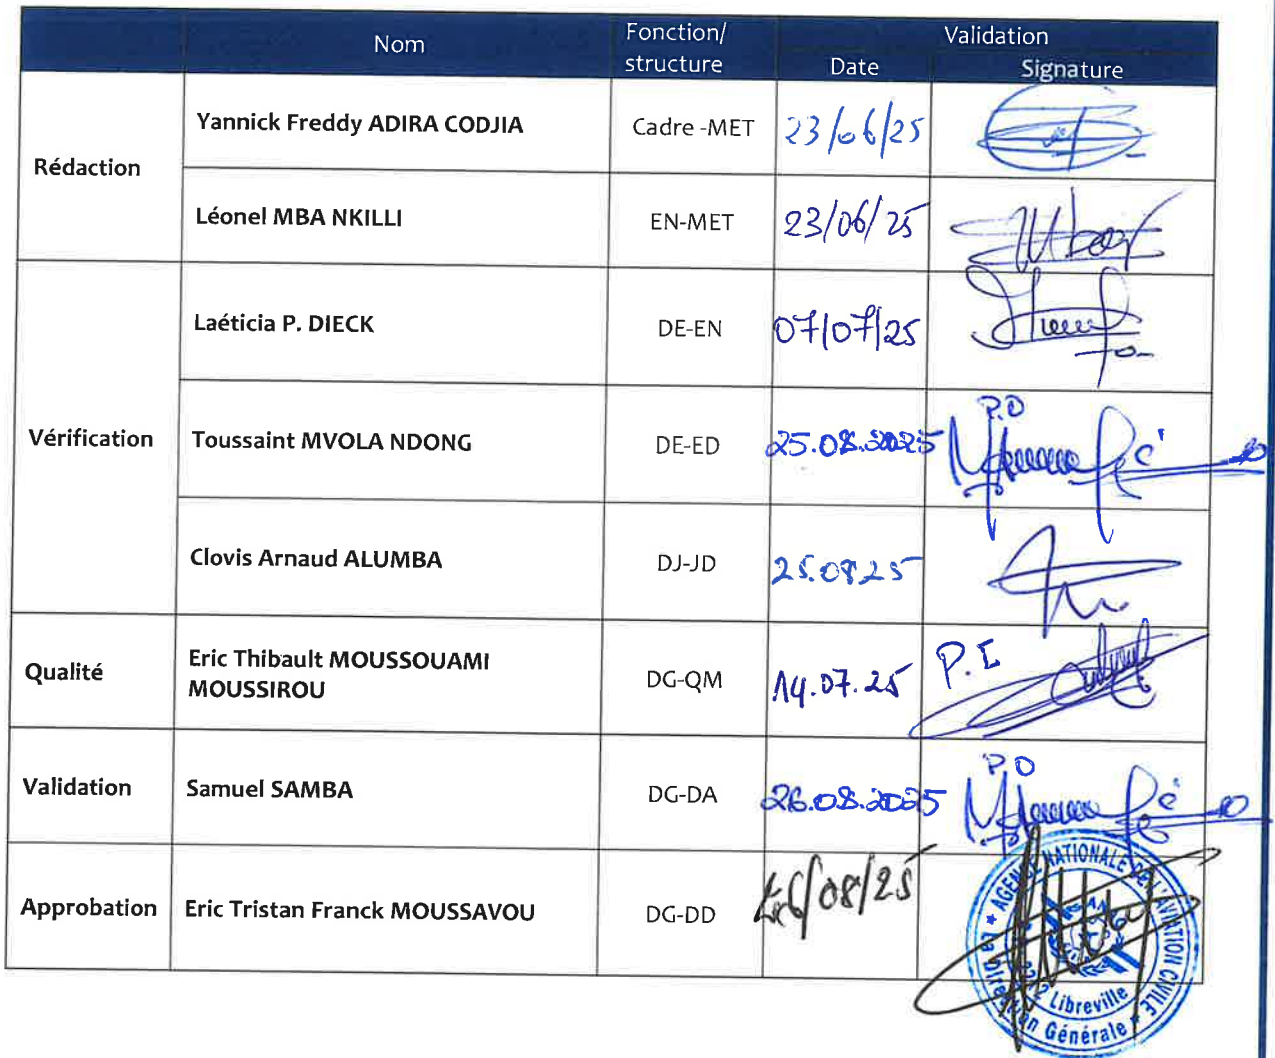 Nom
Fonction/
structure
Validation
Date
Signature
Rédaction
Yannick Freddy ADIRA CODJIA
Cadre -MET
23/06/25
Léonel MBA NKILLI
EN-MET
23/06/25
Vérification
Laéticia P. DIECK
DE-EN
07/07/25
Toussaint MVOLA NDONG
DE-ED
25.08.2025
P.O
Clovis Arnaud ALUMBA
DJ-JD
25.08.25
Qualité
Eric Thibault MOUSSOUAMI
MOUSSIROU
DG-QM
14.07.25
P.I
Validation
Samuel SAMBA
DG-DA
26.08.2025
P.O
Approbation
Eric Tristan Franck MOUSSAVOU
DG-DD
26/08/25
AGENCE NATIONALE DE L'AVIATION CIVILE
Libreville
La Direction Générale